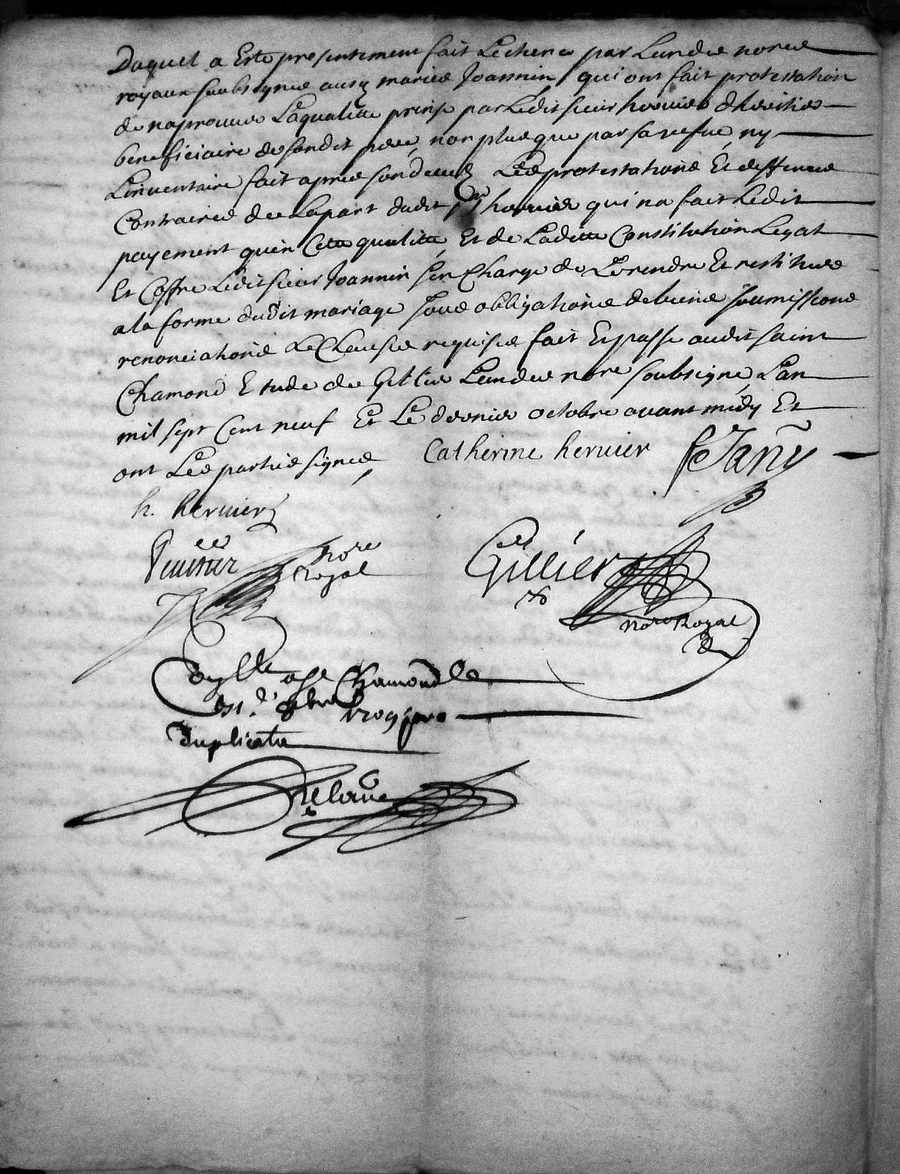 Daquel a Esté presentement fait Lechence par Lundes nores
royaux soubsignes ausd mariés Joannin, qui ont fait protestation
de naprouver Laqualitte prinse par Ledit sieur hervier dheritier
beneficiaire de sondit pere, non plus que par sa vefue, ny
Linventaire fait apres son deced, Les protestations Et deffences
Contraires de Lapart dudit sr hervier qui na fait Ledit
payement quen Cette qualitté, Et de Laditte Constitution Legat
Et Coffre Ledit sieur Joannin sen Charge de Lerendre Et restituer
a la forme dudit mariage sous obligations de biens soumissions
renonciations Le Clauses requises fait Et passé audit saint
Chamond Etude de Gillier Lundes nores soubsigné, Lan
mil sept Cent neuf Et Le dernier octobre avant midy Et
ont Les parties signés, Catherine hervier
h. hervier
nore Royal
Gillier
nore Royal
a st Chamond le
duplicata